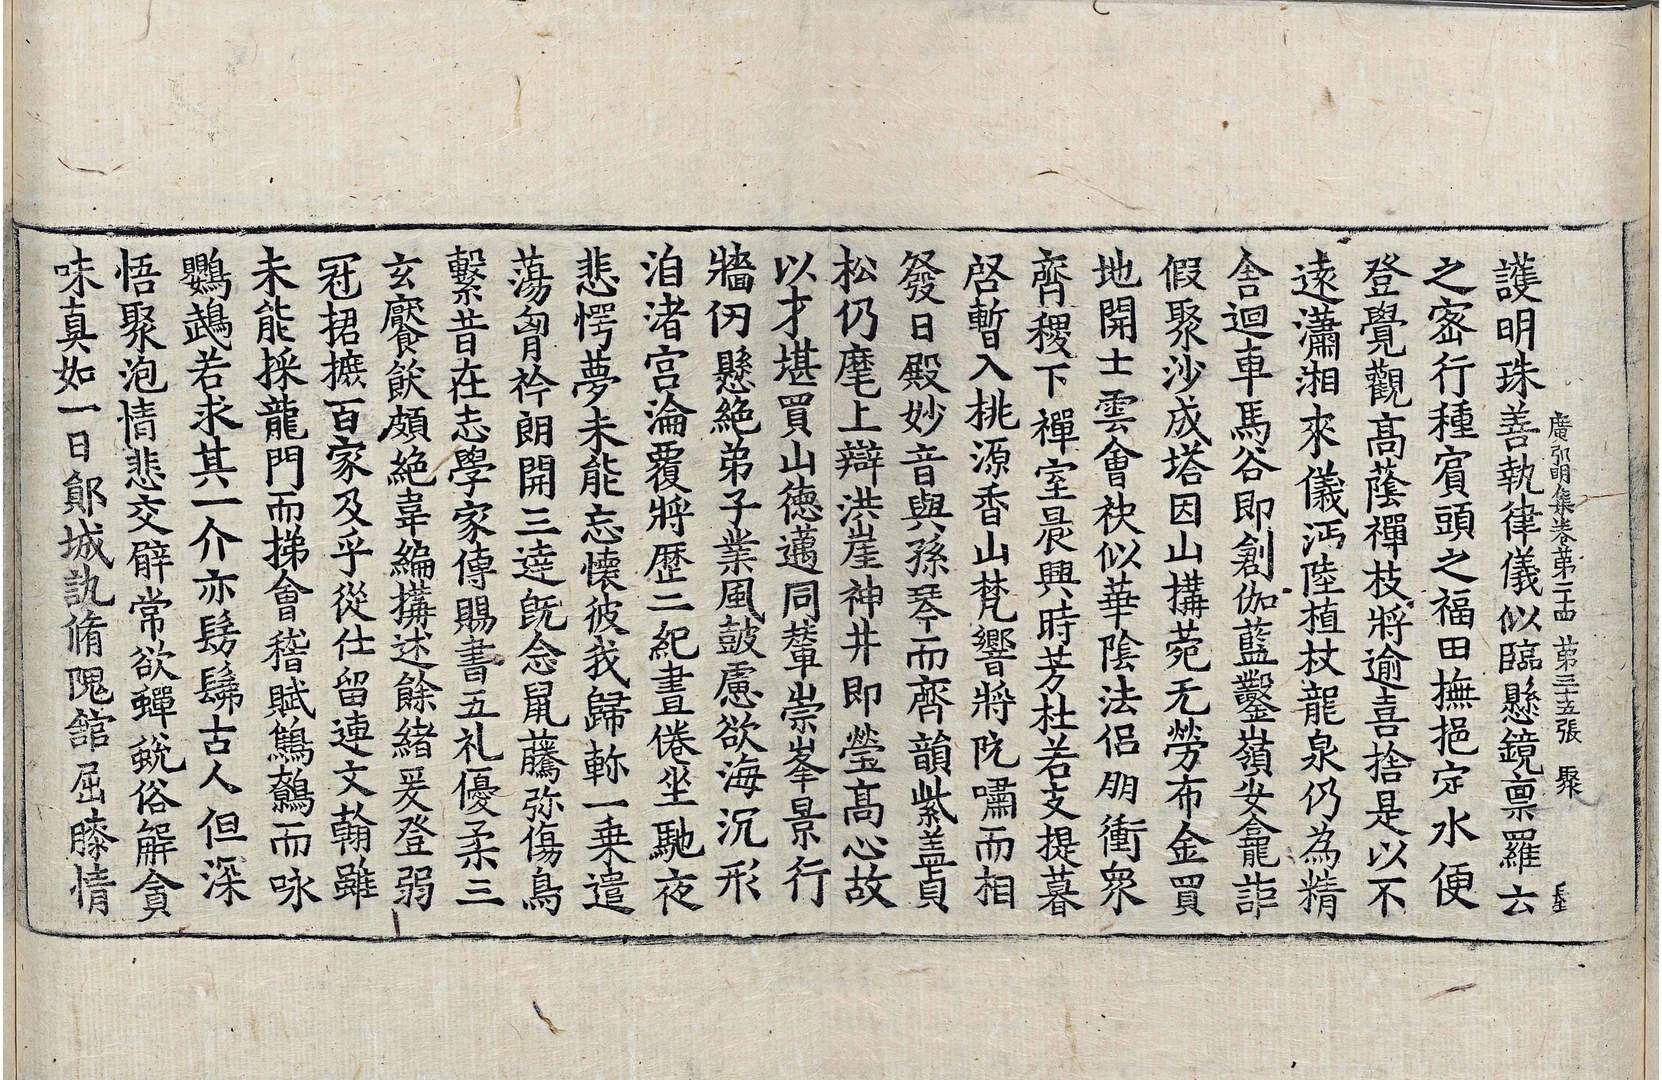 廣弘明集卷第二十四　第三十五張　聚
護明珠善執律儀似臨懸鏡禀羅云
之宻行種賔頭之福田撫挹定水便
登覺觀高蔭禪枝將逾喜捨是以不
遠瀟湘來儀沔陸植杖龍泉仍為精
舎迴車馬谷即創伽藍鑿嶺安龕詎
假聚沙成塔因山搆苑无勞布金買
地開士雲會袂似華陰法侣朋衝衆
齊稷下禪室晨興時芳杜若支提暮
啓暫入桃源香山梵響將阮嘯而相
發日殿妙音與孫琴而齊韻紫盖貞
松仍麾上辯洪崖神井即瑩高心故
以才堪買山德邁同輦崇峯景行
牆仞懸絶弟子業風鼓慮欲海沉形
洎渚宫淪覆將歴二紀晝倦坐馳夜
悲愕夢未能忘懷彼我歸軫一乗遣
蕩胷衿朗開三逹旣念鼠藤弥傷鳥
繫昔在志學家傳賜書五礼優柔三
玄饜飫頗絶韋編搆述餘緒爰登弱
冠捃摭百家及乎從仕留連文翰雖
未能採龍門而掃會稽賦鷦鷯而咏
鸚鵡若求其一介亦髣髴古人但深
悟聚泡情悲交臂常欲蟬蛻俗解貪
味真如一日鄔城訊脩隗舘屈膝情